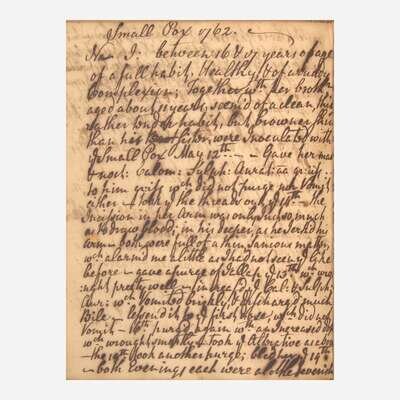 Small Pox 1762.
No. I. between 16 & 17 years of age
of a full habit, Healthy & of a ruddy
Complexion; Together wth her broth
aged about 11 years, seem'd of a clean,
rather tender habit, but browner skin
than his sister, were Inoculated with
ye Small Pox May 12th — Gave her
& noct. Calom: Sulph: Aurat: aa gr:
to him gr: wch did not purge nor Vomit
either — took ye threads out ye 14th — The
Incision in her Arm was only so much
as to Draw blood; in his deeper, as he jerk'd his
arm — both were full of a thin Sanious matter,
wch alarm'd me a little as I had not seen ye like
before — gave a purge of Jallap ye 15th wch wro
ught pretty well — increas'd ye Cal: & Sulph:
Aur: wch Vomited briskly & discharg'd much
Bile — lessen'd it to ye first dose, wch did not
Vomit — 16th purg'd again wth an Increased dose
wch wrought smartly & took ye Alterative as
— the 19th took another purge; bled ye 19th
— both Evenings each were